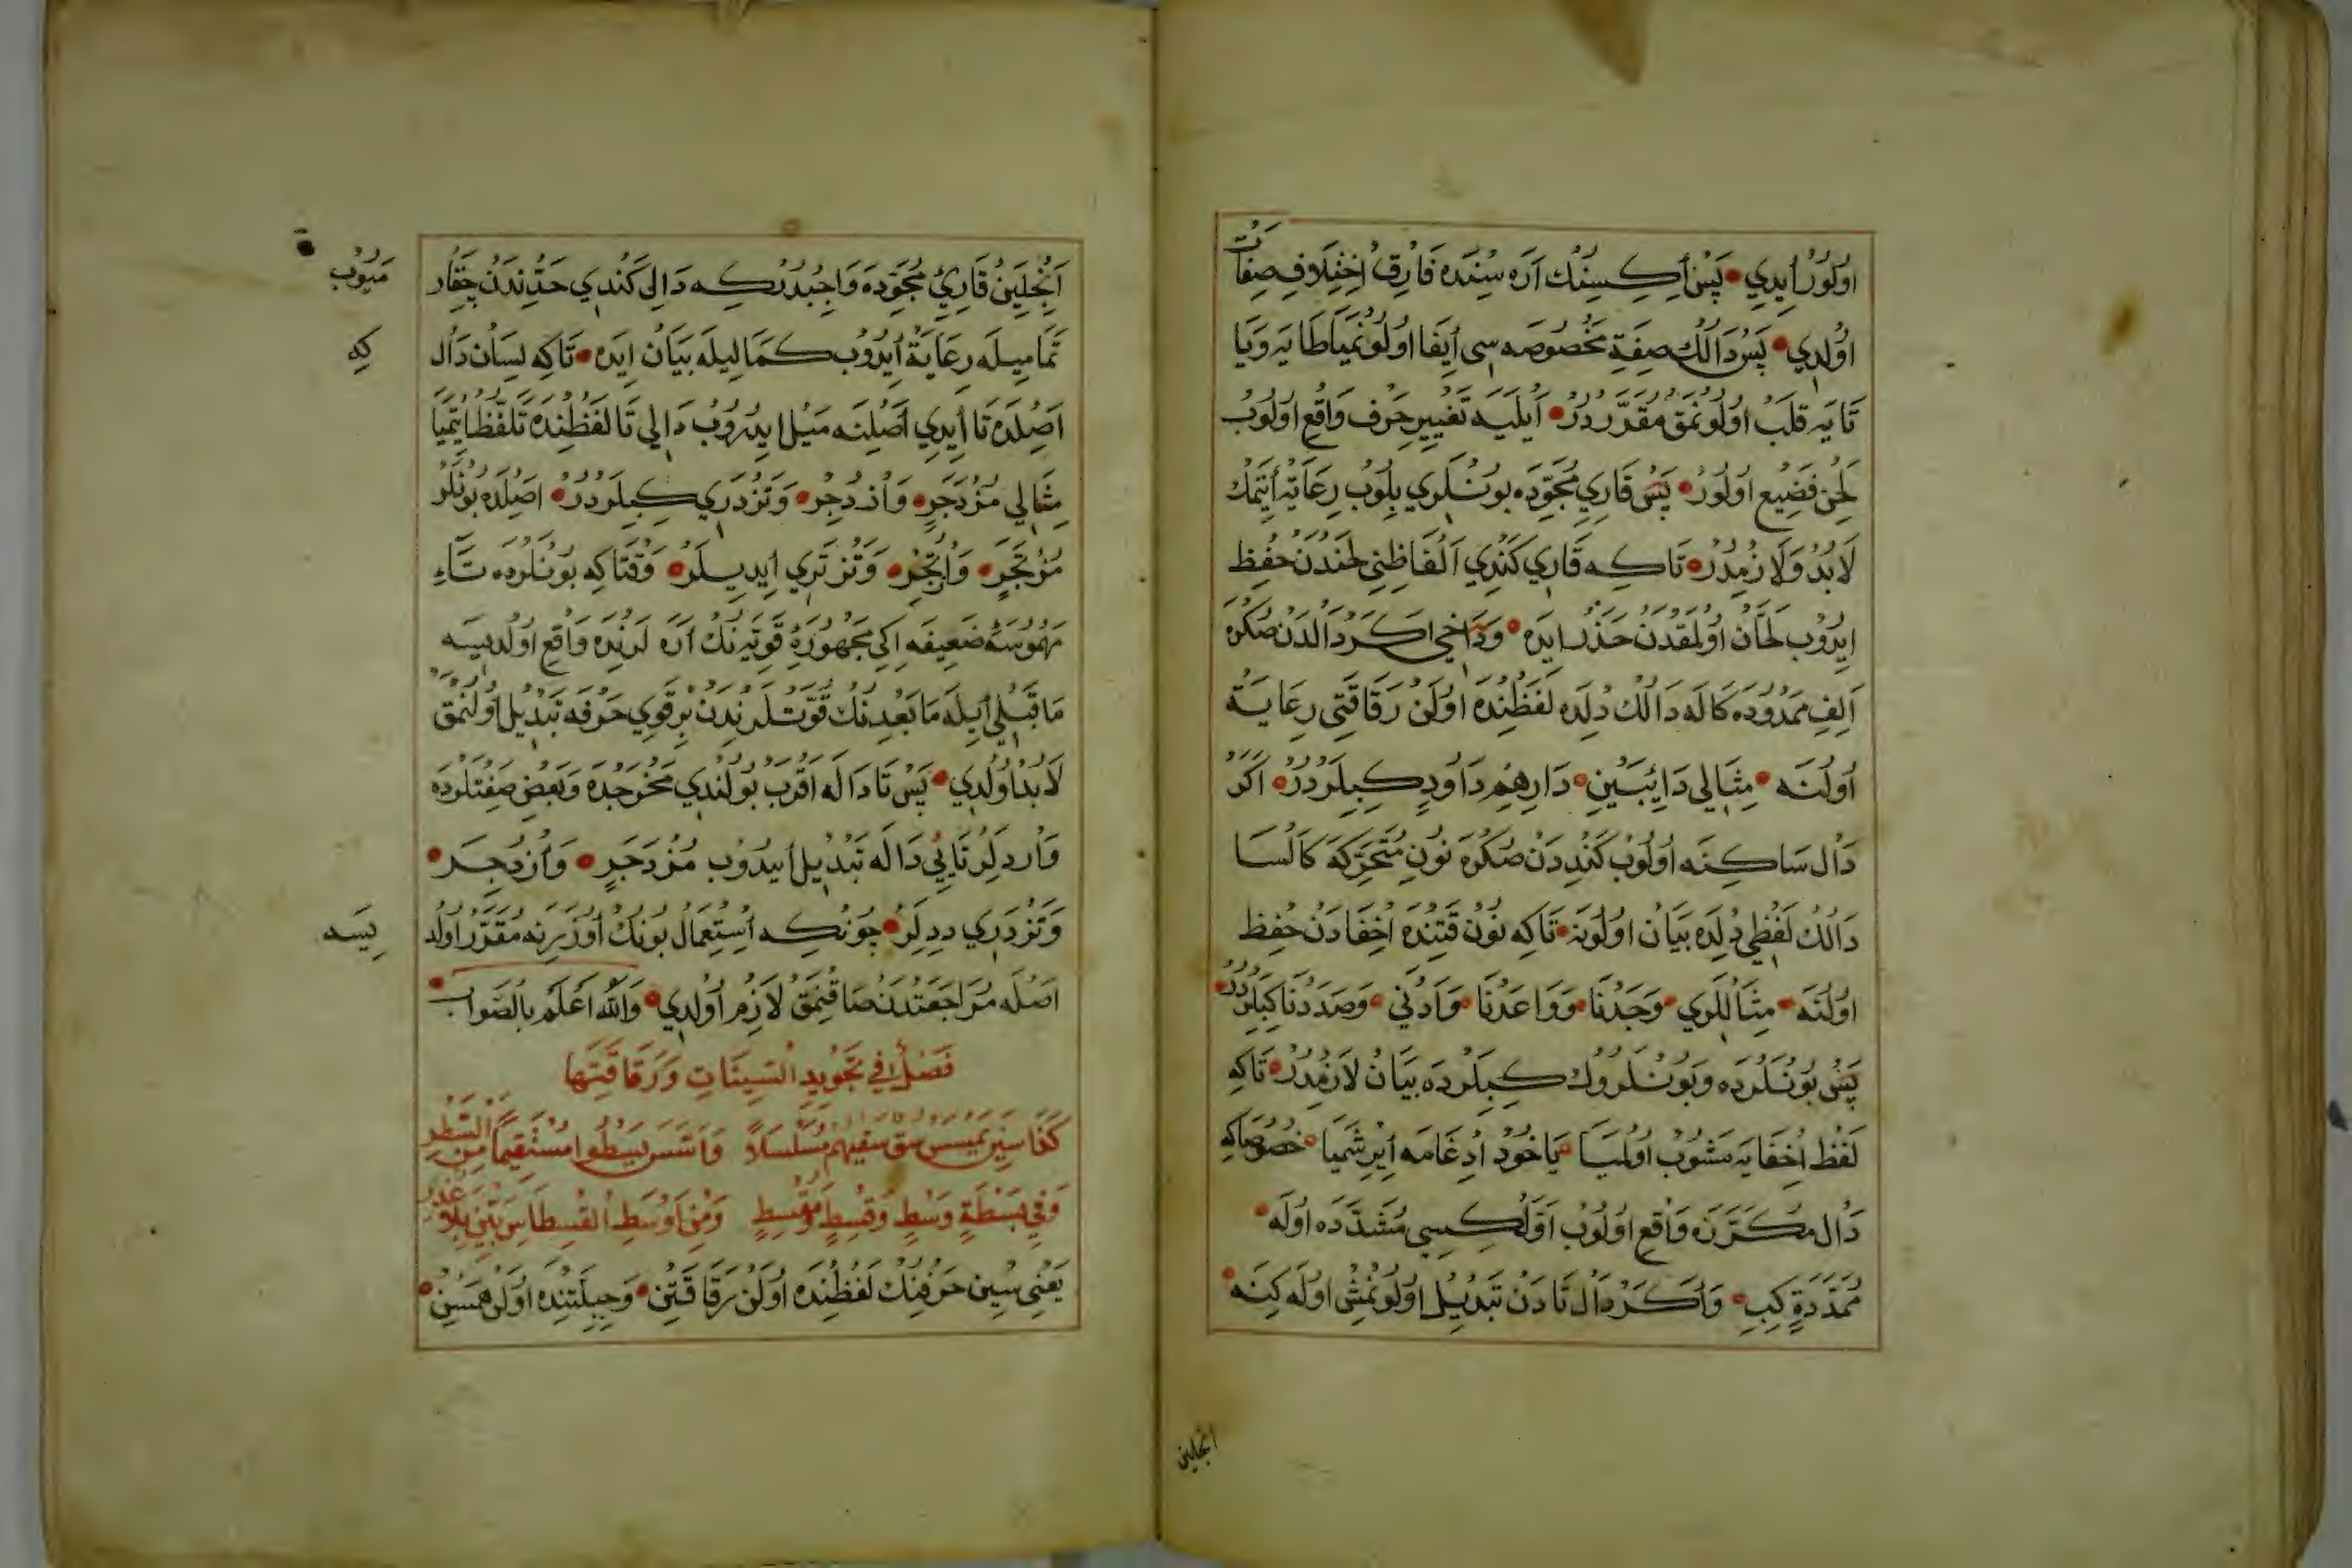 اولور ایدي پس ایکسنك اره سنده فارق اختلاف صفات
اولدي پس دالك صفة مخصوصه سی ایفا اولونمیا طایه ویا
تایه قلب اولونمق مقرردر ایلیه تغییر حرف واقع اولوب
لحن فضیع اولور پس قاري مجوده بونلري بلوب رعایة ایتمك
لا بد ولازمدر تاکه قاري کندي الفاظنی لحندن حفظ
ایدوب لحان اولمقدن حذر ایده وداخي اکر دالدن صکره
الف ممدوده کاله دالك دلده لفظنده اولن رقاقتی رعایة
اولنه مثالی دائبین دارهم داود کبیلردر اکر
دال ساکنه اولوب کندیدن صکره نون متحرکه کالسا
دالك لفظی دلده بیان اولونه تاکه نون قتنده اخفادن حفظ
اولنه مثاللري وجدنا وواعدنا وادنی وصددنا کبیلردر
پس بونلرده وبونلروك کبیلرده بیان لازمدر تاکه
لفظ اخفایه مشوب اولمیا یاخود ادغامه ایرشمیا خصوصاکه
دال مکررنه واقع اولوب اولکیسی مشدده اوله
ممددة کبی واکر دال تادن تبدیل اولونمش اوله کینه
انجلین
انجلین قارئ مجوده واجبدرکه دالی کندي حدندن چقار
میوب
تمامیله رعایة ایدوب کمالیله بیان ایده تاکه لسان دال
که
اصلده تا ایدي اصلنه میل ایدروب دالی تا لفظنده تلفظ ایتمیا
مثالی مزدجر وازدجر وتزدري کبیلردر اصلده بونلر
مزتجر وازتجر وتزتري ایدیلر وقتاکه بونلرده تاء
مهموسهٔ ضعیفه ایکی مجهورهٔ قویه نك اره لرنده واقع اولدیسه
ما قبلی ایله ما بعدنك قوتلرندن بر قوي حرفه تبدیل اولنمق
لا بد اولدي پس تا داله اقرب بولندي مخرجده وبعض صفتلرده
واردلر تایی داله تبدیل ایدوب مزدجر وازدجر
وتزدري ددلر چونکه استعمال بونك اوزرینه مقرر اولد
یسه
اصله مراجعتدن صاقنمق لازم اولدي والله اعلم بالصواب
فصل في تجوید السینات ورقاقتها
وفي بسطة وسط وقسط ومقسط ومن اوسط القسطاس بین بلا غدر
یعنی سین حرفنك لفظنده اولن رقاقتین وجبلتنده اولن همسین